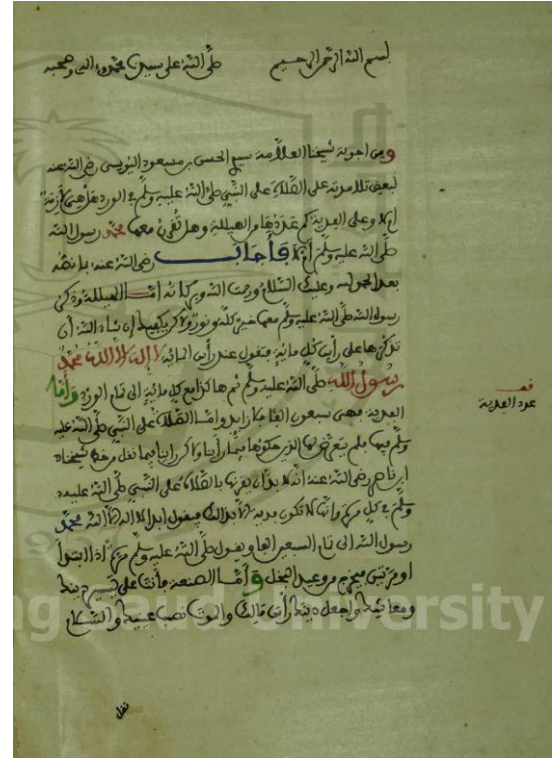 بسم الله الرحمن الرحيم صلى الله على سيدنا محمد وءاله وصحبه
ومن اجوبة شيخنا العلامة سيدي الحسن بن مسعود اليوسي رضي الله عنه
لبعض تلامذته على الصلاة على النبي صلى الله عليه وسلم في الورد هل هي لازمة
ام لا وعلى الفدية كم عددها والهيللة وهل تقرن معها محمد رسول الله
صلى الله عليه وسلم ام لا فأجاب رضي الله عنه بما نصه
بعد الحمد لله وعليك السلام ورحمت الله وبركاته أما الهيللة وذكر
رسول الله صلى الله عليه وسلم معها خير كله ونور ولاكن يكفيك إن شاء الله أن
تذكرها على رأس كل مائة فتقول عند رأس المائة لا إله إلا الله محمد
رسول الله صلى الله عليه وسلم ثم هاكذا مع كل مائة إلى تمام الورد وأما
الفدية فهي سبعون الفا بلا زايد واما الصلاة على النبي صلى الله عليه
وسلم فيها فلم يتعرض لها الذين ذكروها فيما رأينا ولاكن رأينا فيما نقل من شيخنا
ابن ناصر رضي الله عنه انه لا بد أن يقرنها بالصلاة على النبي صلى الله عليه
وسلم في كل مرة وانها لا تكون فدية إلا بذالك فيقول ابدا لا اله إلا الله محمد
رسول الله الى تمام السبعين الفا ويقول صلى الله عليه وسلم مرة اذا ابتدأ
او مرتين ليخرج من وعيد البخل وأما الصنعة فأنت على
ومعاشك واجعل دينك رأس مالك والموت نصب عينيك والسلام
نفل
قف
عدد الفدية
King Saud University